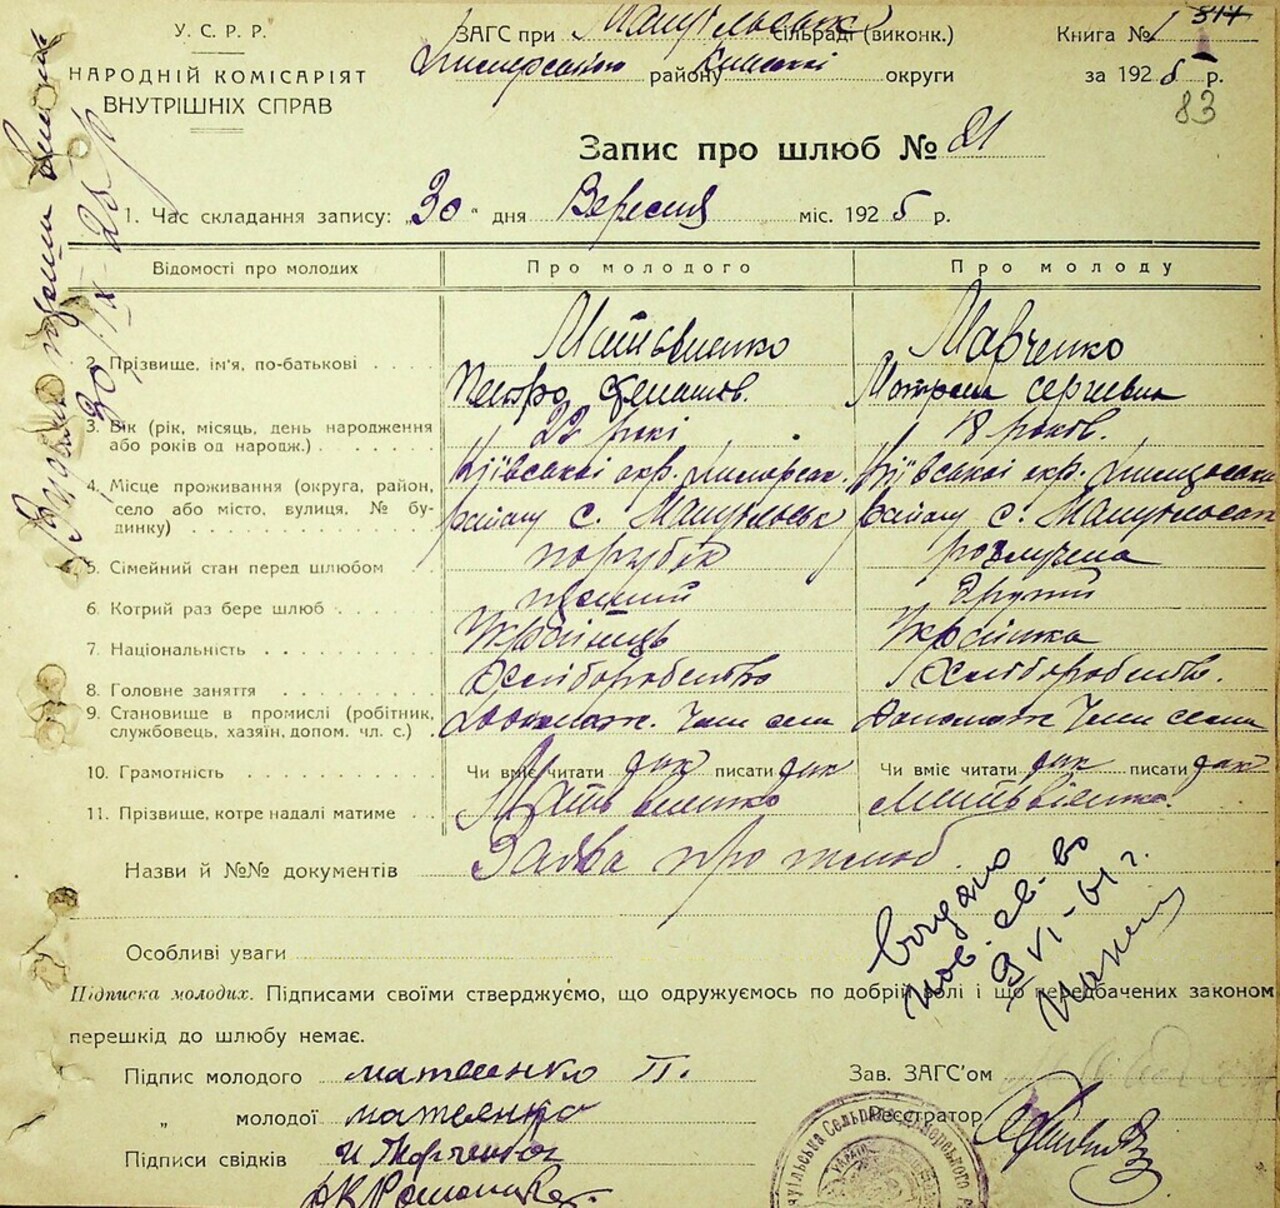 У. С. Р. Р.
НАРОДНІЙ КОМІСАРІЯТ
ВНУТРІШНІХ СПРАВ
ЗАГС при сільраді (виконк.)
району Київської округи
Книга № 1
за 1925 р.
83
Запис про шлюб № 21
1. Час складання запису: „30" дня Вересня міс. 1925 р.
Відомості про молодих Про молодого Про молоду
2. Прізвище, ім'я, по-батькові . . . .
Матвієнко
Петро
Мавченко
Мотрона Сергіевна
3. Вік (рік, місяць, день народження
або років од народж.) . . . . . .
22 рокі
18 років.
4. Місце проживання (округа, район,
село або місто, вулиця, № бу-
динку)
Київської окр.
району с.
Київської окр.
району с.
5. Сімейний стан перед шлюбом . .
парубок
розлучена
6. Котрий раз бере шлюб . . . . . .
перший
другий
7. Національність . . . . . . . . . .
Українець
Українка
8. Головне заняття . . . . . . . . .
Хліборобство
Хліборобств.
9. Становище в промислі (робітник,
службовець, хазяїн, допом. чл. с.) .
Допомаж. Член семи
Допомаж Член семи
10. Грамотність . . . . . . . . . . .
Чи вміє читати так писати так
Чи вміє читати так писати так
11. Прізвище, котре надалі матиме . .
Матвієнко
Матьвієнко.
Назви й №№ документів Заява про шлюб.
Видано
пов. св-во
9 VI-61 г.
Особливі уваги
Підписка молодих. Підписами своїми стверджуємо, що одружуємось по добрій волі і що передбачених законом
перешкід до шлюбу немає.
Підпис молодого матвиенко П.
„ молодої матвиенко
Підписи свідків
Зав. ЗАГС'ом
Реєстратор
30/IX-25 р